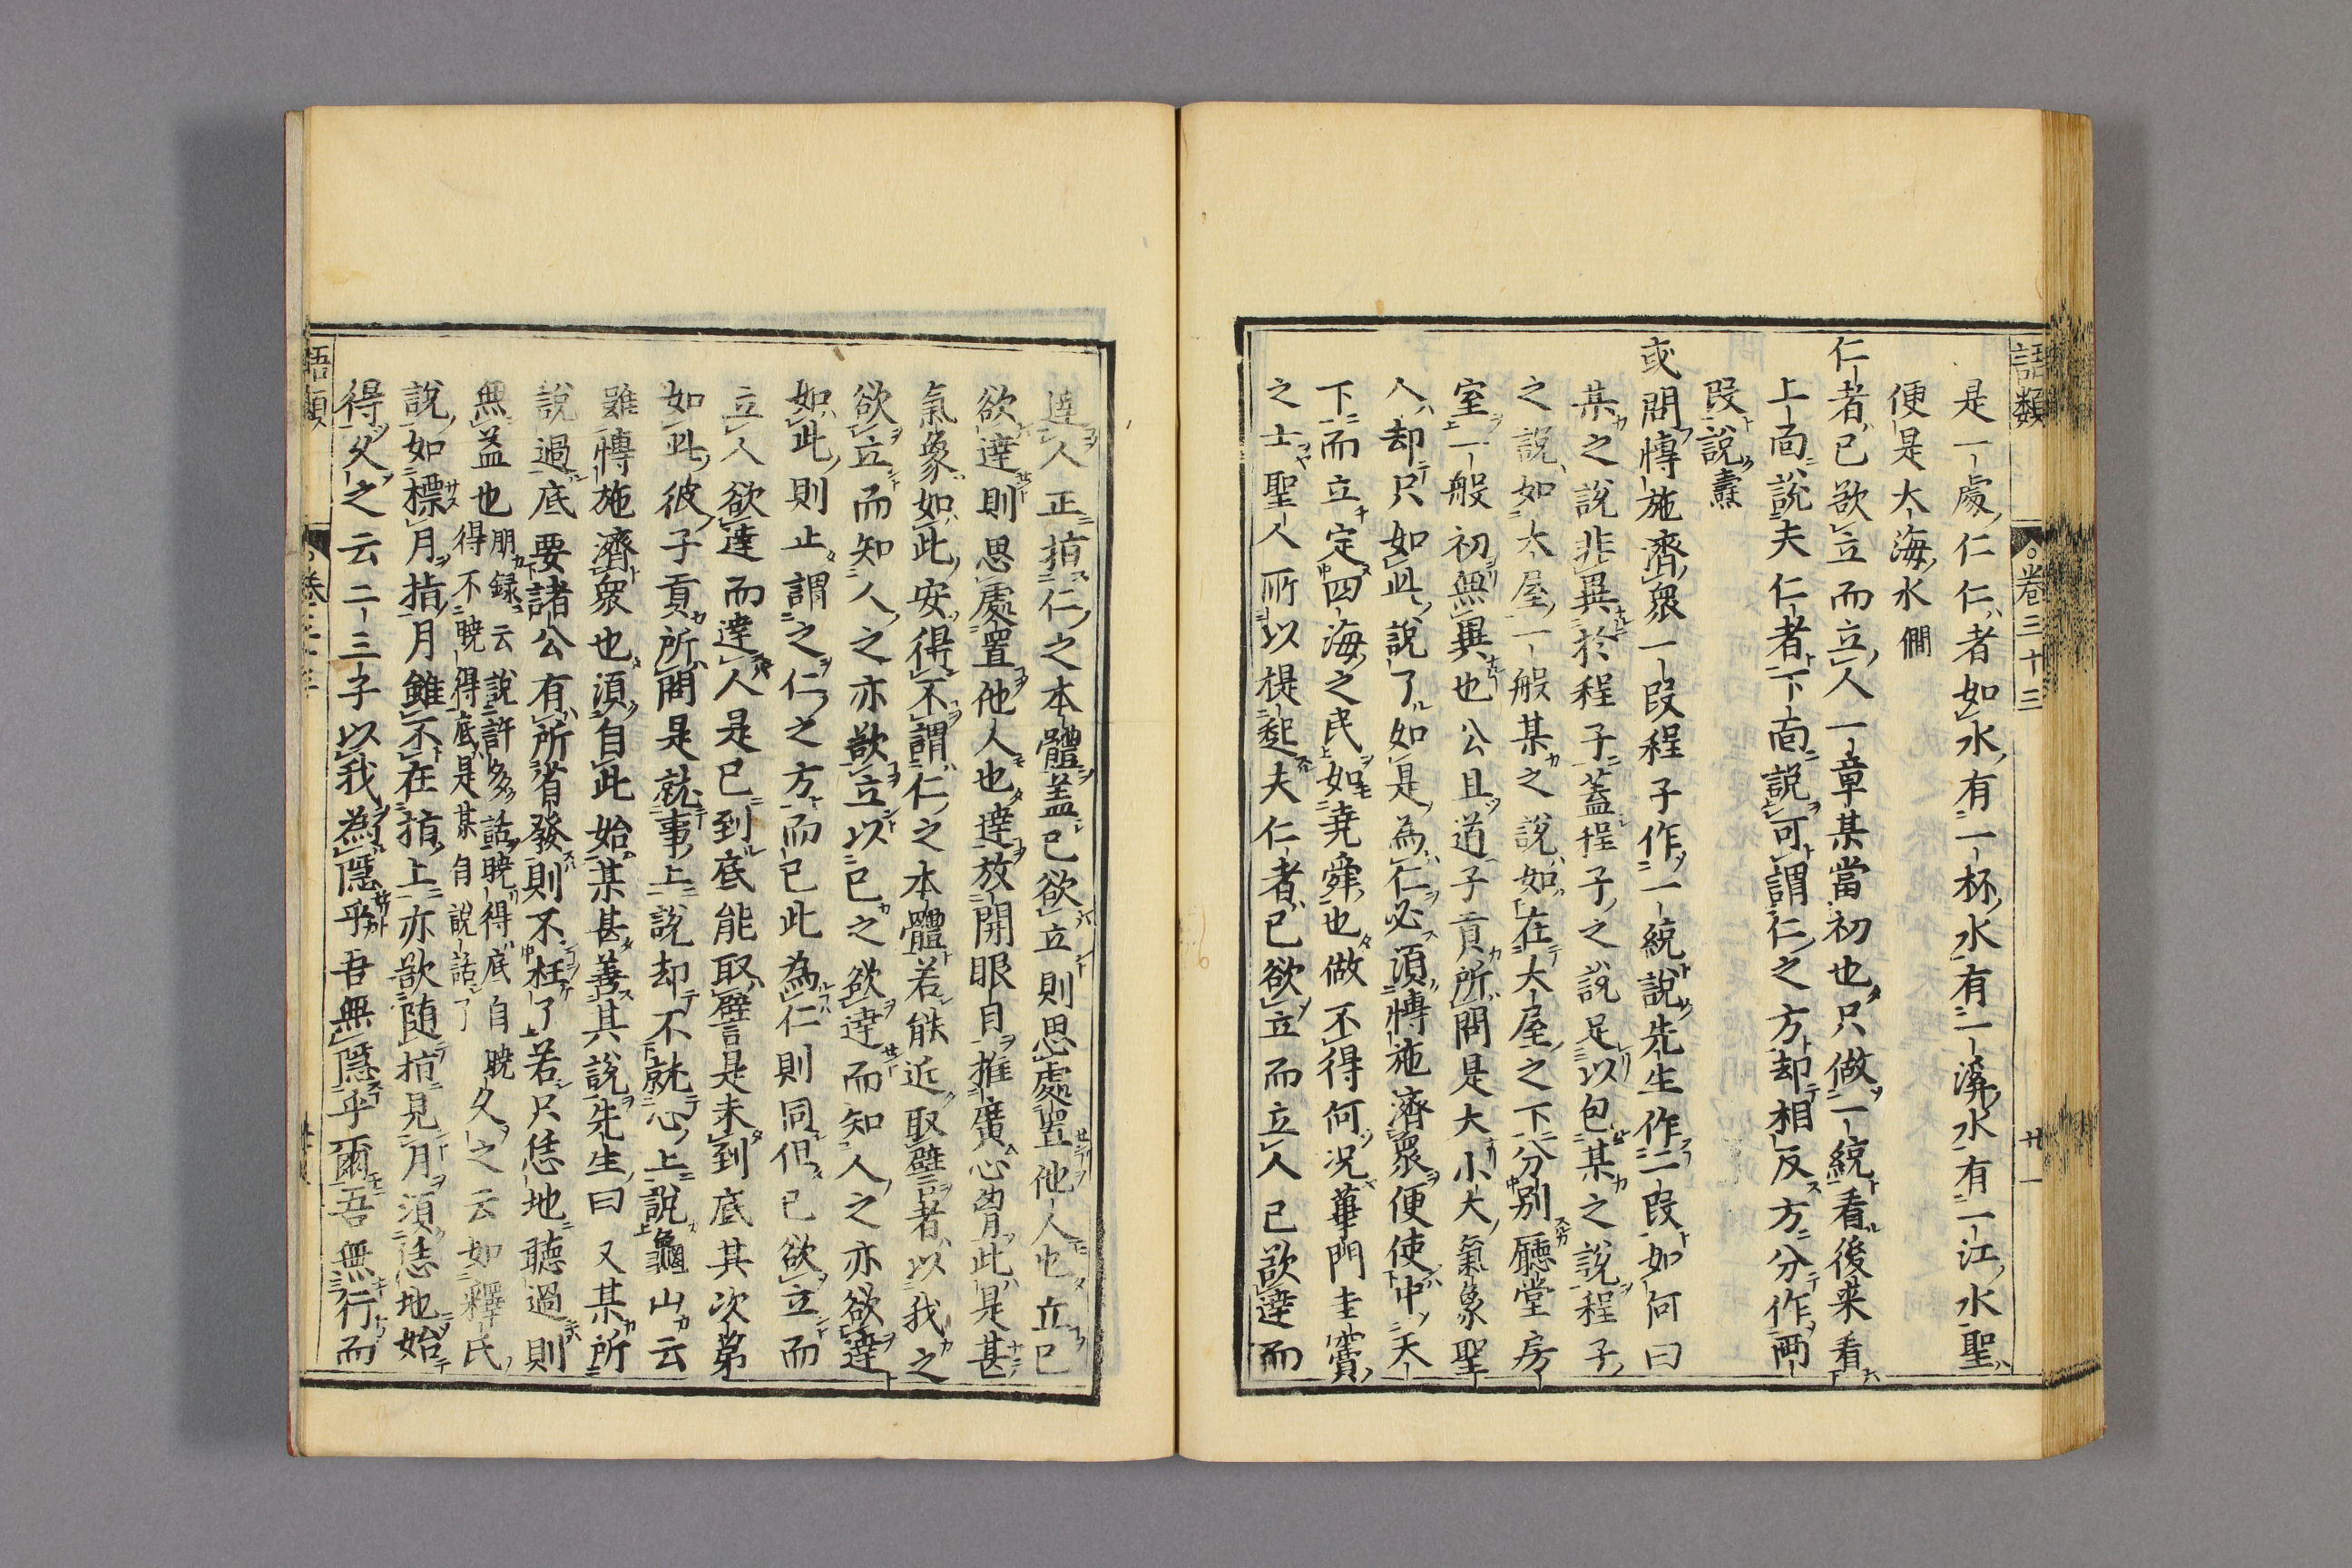 語類
卷三十三
廿一
是一處仁仁者如水有一杯水有一溪水有一江水聖
便是大海水 僩
仁者己欲立而立人一章某當初也只做一統看後来看
上面說夫仁者下面說可謂仁之方却相反方分作兩
段說 燾
或問愽施濟衆一段程子作一統說先生作二段如何曰
某之說非異於程子蓋程子之說足以包某之說程子
之說如大屋一般某之說如在大屋之下分別廳堂房
室一般初無異也公且道子貢所問是大小大氣象聖
人却只如此說了如是為仁必須愽施濟衆便使中天
下而立定四海之民如堯舜也做不得何況蓽門圭竇
之士聖人所以提起夫仁者己欲立而立人己欲達而
達人正指仁之本體蓋己欲立則思處置他人也立己
欲達則思處置他人也達放開眼目推廣心胷此是甚
氣象如此安得不謂仁之本體若能近取譬者以我之
欲立而知人之亦欲立以己之欲達而知人之亦欲達
如此則止謂之仁之方而已此為仁則同但己欲立而
立人欲達而達人是已到底能取譬是未到底其次第
如此彼子貢所問是就事上說却不就心上說龜山云
雖愽施濟衆也須自此始某甚善其說先生曰又某所
說過底要諸公有所省發則不枉了若只恁地聽過則
無益也 朋録云說許多話曉得底自曉得不曉得底是某自說話了 久之云如釋氏
說如標月指月雖不在指上亦欲隨指見月須恁地始
得久之云二三子以我為隱乎吾無隱乎爾吾無行而
語類